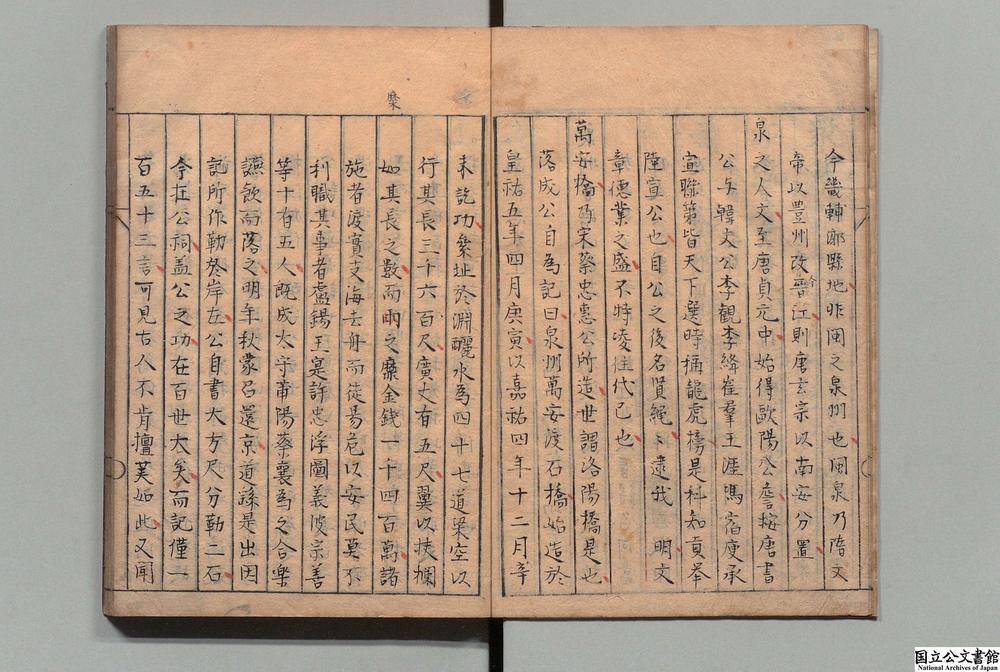 今畿輔縣地昨閩之泉州也閩泉乃隋文
帝以豊州改今晉江則唐玄宗以南安分置
泉之人文至唐貞元中始得歐陽公詹按唐書
公与韓文公李觀李絳崔羣王涯馮宿庾承
宣聯第皆天下選時稱龍虎榜是科知貢舉
陸宣公也自公之後名賢繩〻遠我 明文
章德業之盛不特凌往代已也
萬安橋乃宋蔡忠惠公所造世謂洛陽橋是也
落成公自為記曰泉州萬安渡石橋始造於
皇祐五年四月庚寅以嘉祐四年十二月辛
未訖功絫址於淵釃水為四十七道梁空以
行其長三千六百尺廣丈有五尺翼以扶欄
糜
如其長之數而兩之靡金錢一千四百萬諸
施者渡實支海去舟而徒易危以安民莫不
利職其事者盧錫王寔許忠浮圖義波宗善
等十有五人既成太守莆陽蔡襄為之合樂
讌飲而落之明年秋蒙召還京道繇是出因
記所作勒於岸左公自書大方尺分勒二石
今在公祠盖公之功在百世大矣而記僅一
百五十三言可見古人不肯擅美如此又聞
国立公文書館
National Archives of Japan